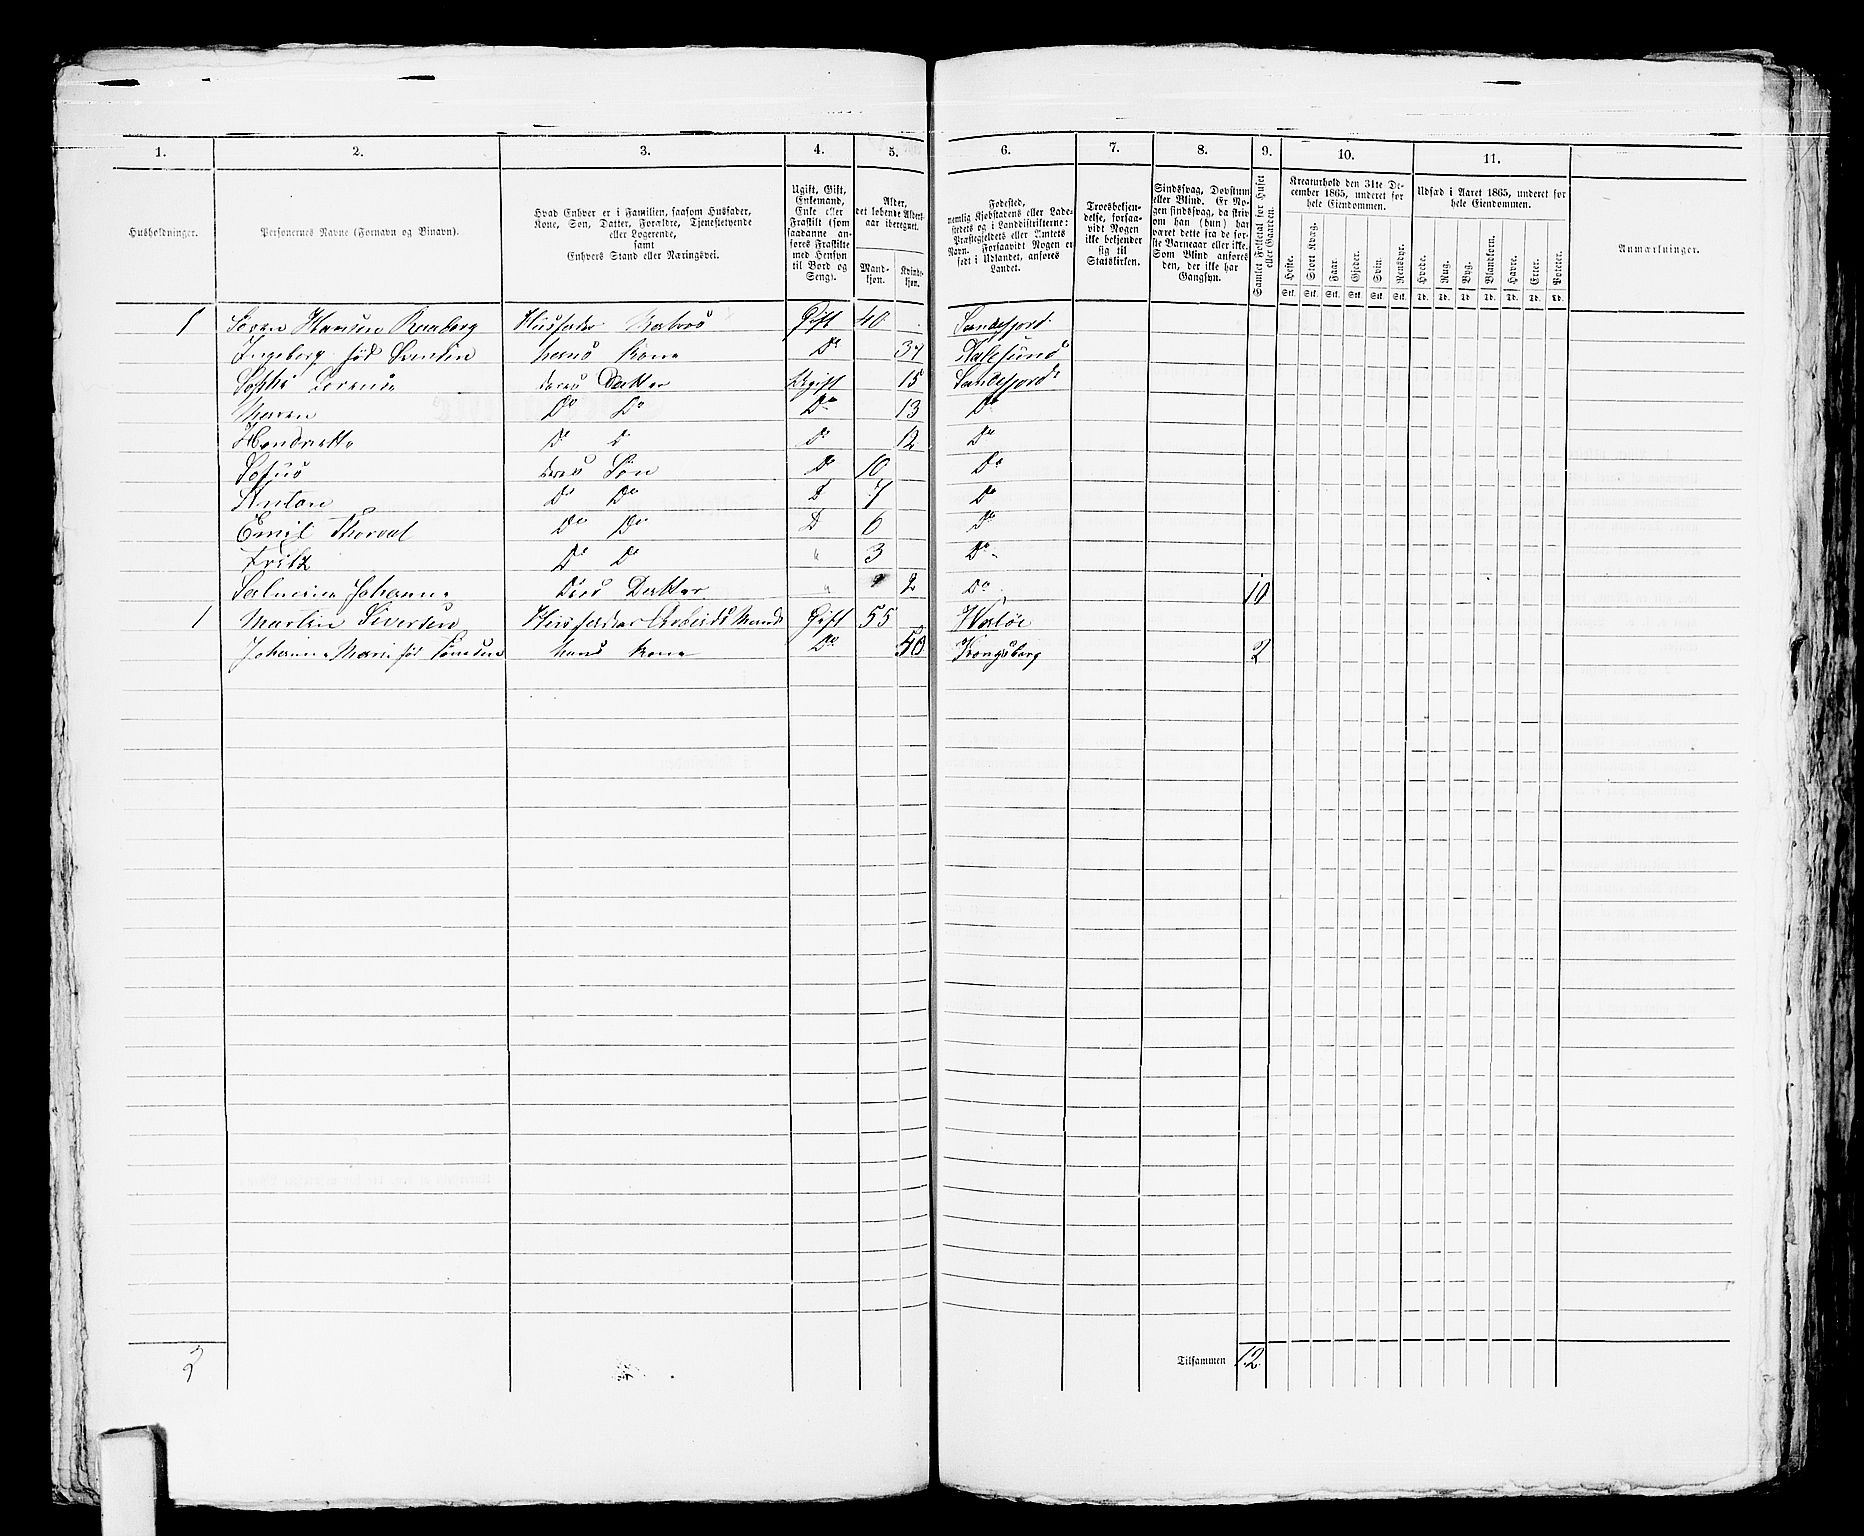 1. 2. 3. 4. 5. 6. 7. 8. 9. 10. 11.
Husholdninger.
Personernes Navne (Fornavn og Binavn).
Hvad Enhver er i Familien, saasom Husfader,
Kone, Søn, Datter, Forældre, Tjenestetyende
eller Logerende,
samt
Enhvers Stand eller Næringsvei.
Ugift, Gift,
Enkemand,
Enke eller
Fraskilt (som
saadanne an-
føres Fraskilte
med Hensyn
til Bord og
Seng).
Alder,
det løbende Alders-
aar iberegnet.
Mand-
kjøn.
Kvinde-
kjøn.
Fødested,
nemlig Kjøbstadens eller Lade-
stedets og i Landdistrikterne:
Præstegjeldets eller Amtets
Navn. Forsaavidt Nogen er
født i Udlandet, anføres
Landet.
Troesbekjen-
delse, forsaa-
vidt Nogen
ikke bekjender
sig til
Statskirken.
Sindssvag, Døvstum
eller Blind. Er No-
gen sindssvag, da skriv
om han (hun) har
været dette fra de før-
ste Barneaar eller ikke.
Som Blind anføres
den, der ikke har
Gangsyn.
Samlet Folketal for Huset
eller Gaarden.
Kreaturhold den 31te De-
cember 1865, underet for
hele Eiendommen.
Heste. Stort Kvæg. Faar. Gjeder. Svin. Rensdyr.
Stk. Stk. Stk. Stk. Stk. Stk.
Udsæd i Aaret 1865, underet for
hele Eiendommen.
Hvede. Rug. Byg. Blandkorn. Havre. Erter. Poteter.
Td. Td. Td. Td. Td. Td. Td.
Anmærkninger.
1 Søren Hansen Husfader Gift 40 Sandefjord
Ingeborg fød Svendsen hans Kone Do 37 Aalesund
Sophi deres Datter Ugift 15 Sandefjord
Maren Do Do Do 13 Do
Hendriette Do D Do 12 Do
Sofus deres Søn Do 10 Do
Anton Do Do D 7 Do
Emil Thorval Do Do D 6 Do
Fritz Do Do " 3 Do
Johanne Datter " 2 Do 10
1 Martin Sivertsen Husfader Arbeidsmand Gift 55
Johanne Marie fød hans Kone Do 50 Kongsberg 2
2 Tilsammen 12